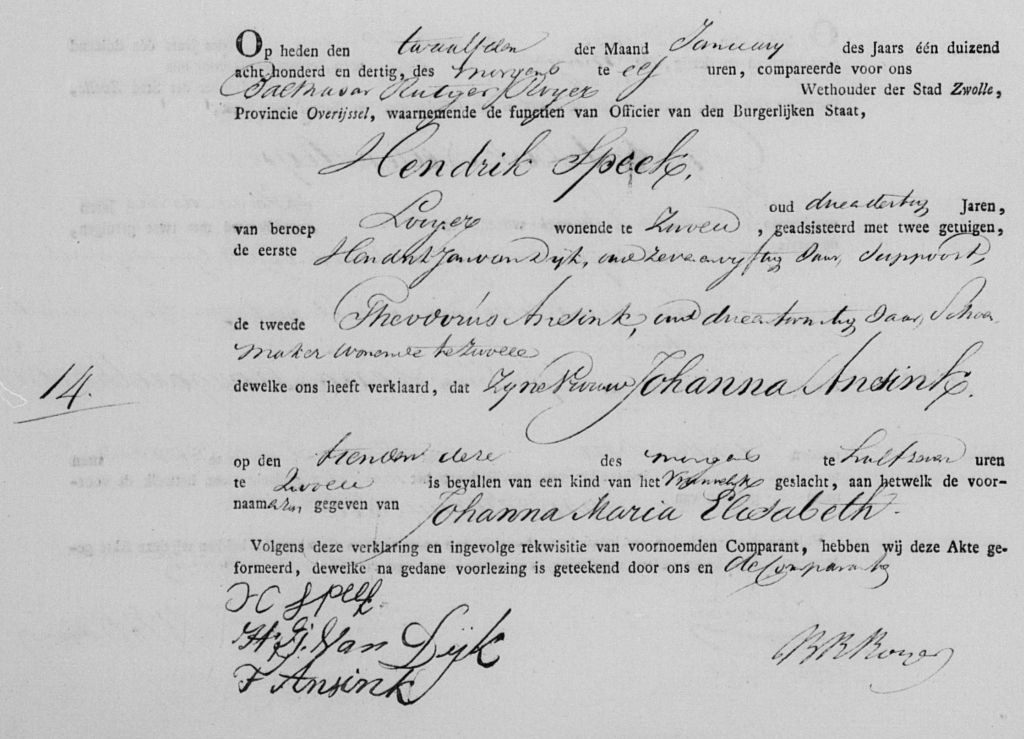 Op heden den twaalfden der Maand January des Jaars één duizend
acht honderd en dertig, des morgens te elf uren, compareerde voor ons
Balthasar Rutger Royer Wethouder der Stad Zwolle,
Provincie Overijssel, waarnemende de functien van Officier van den Burgerlijken Staat,
Hendrik Speek,
oud drieendertig Jaren,
van beroep Looyer wonende te Zwolle, geadsisteerd met twee getuigen,
de eerste Hendrik Jan van Dijk, oud zevenenvyftig Jaar, Suppoost,
de tweede Theodorus Ansink, oud drieentwintig Jaar, Schoe
maker wonende te Zwolle
14.
dewelke ons heeft verklaard, dat Zyne Vrouw Johanna Ansink,
op den tienden dezer des morgens te half zeven uren
te Zwolle is bevallen van een kind van het Vrouwelyk geslacht, aan hetwelk de voor-
naamen, gegeven van Johanna Maria Elisabeth.
Volgens deze verklaring en ingevolge rekwisitie van voornoemden Comparant, hebben wij deze Akte ge-
formeerd, dewelke na gedane voorlezing is geteekend door ons en de Comparanten
H Speek.
H. J. Van Dijk
T Ansink
B R Royer